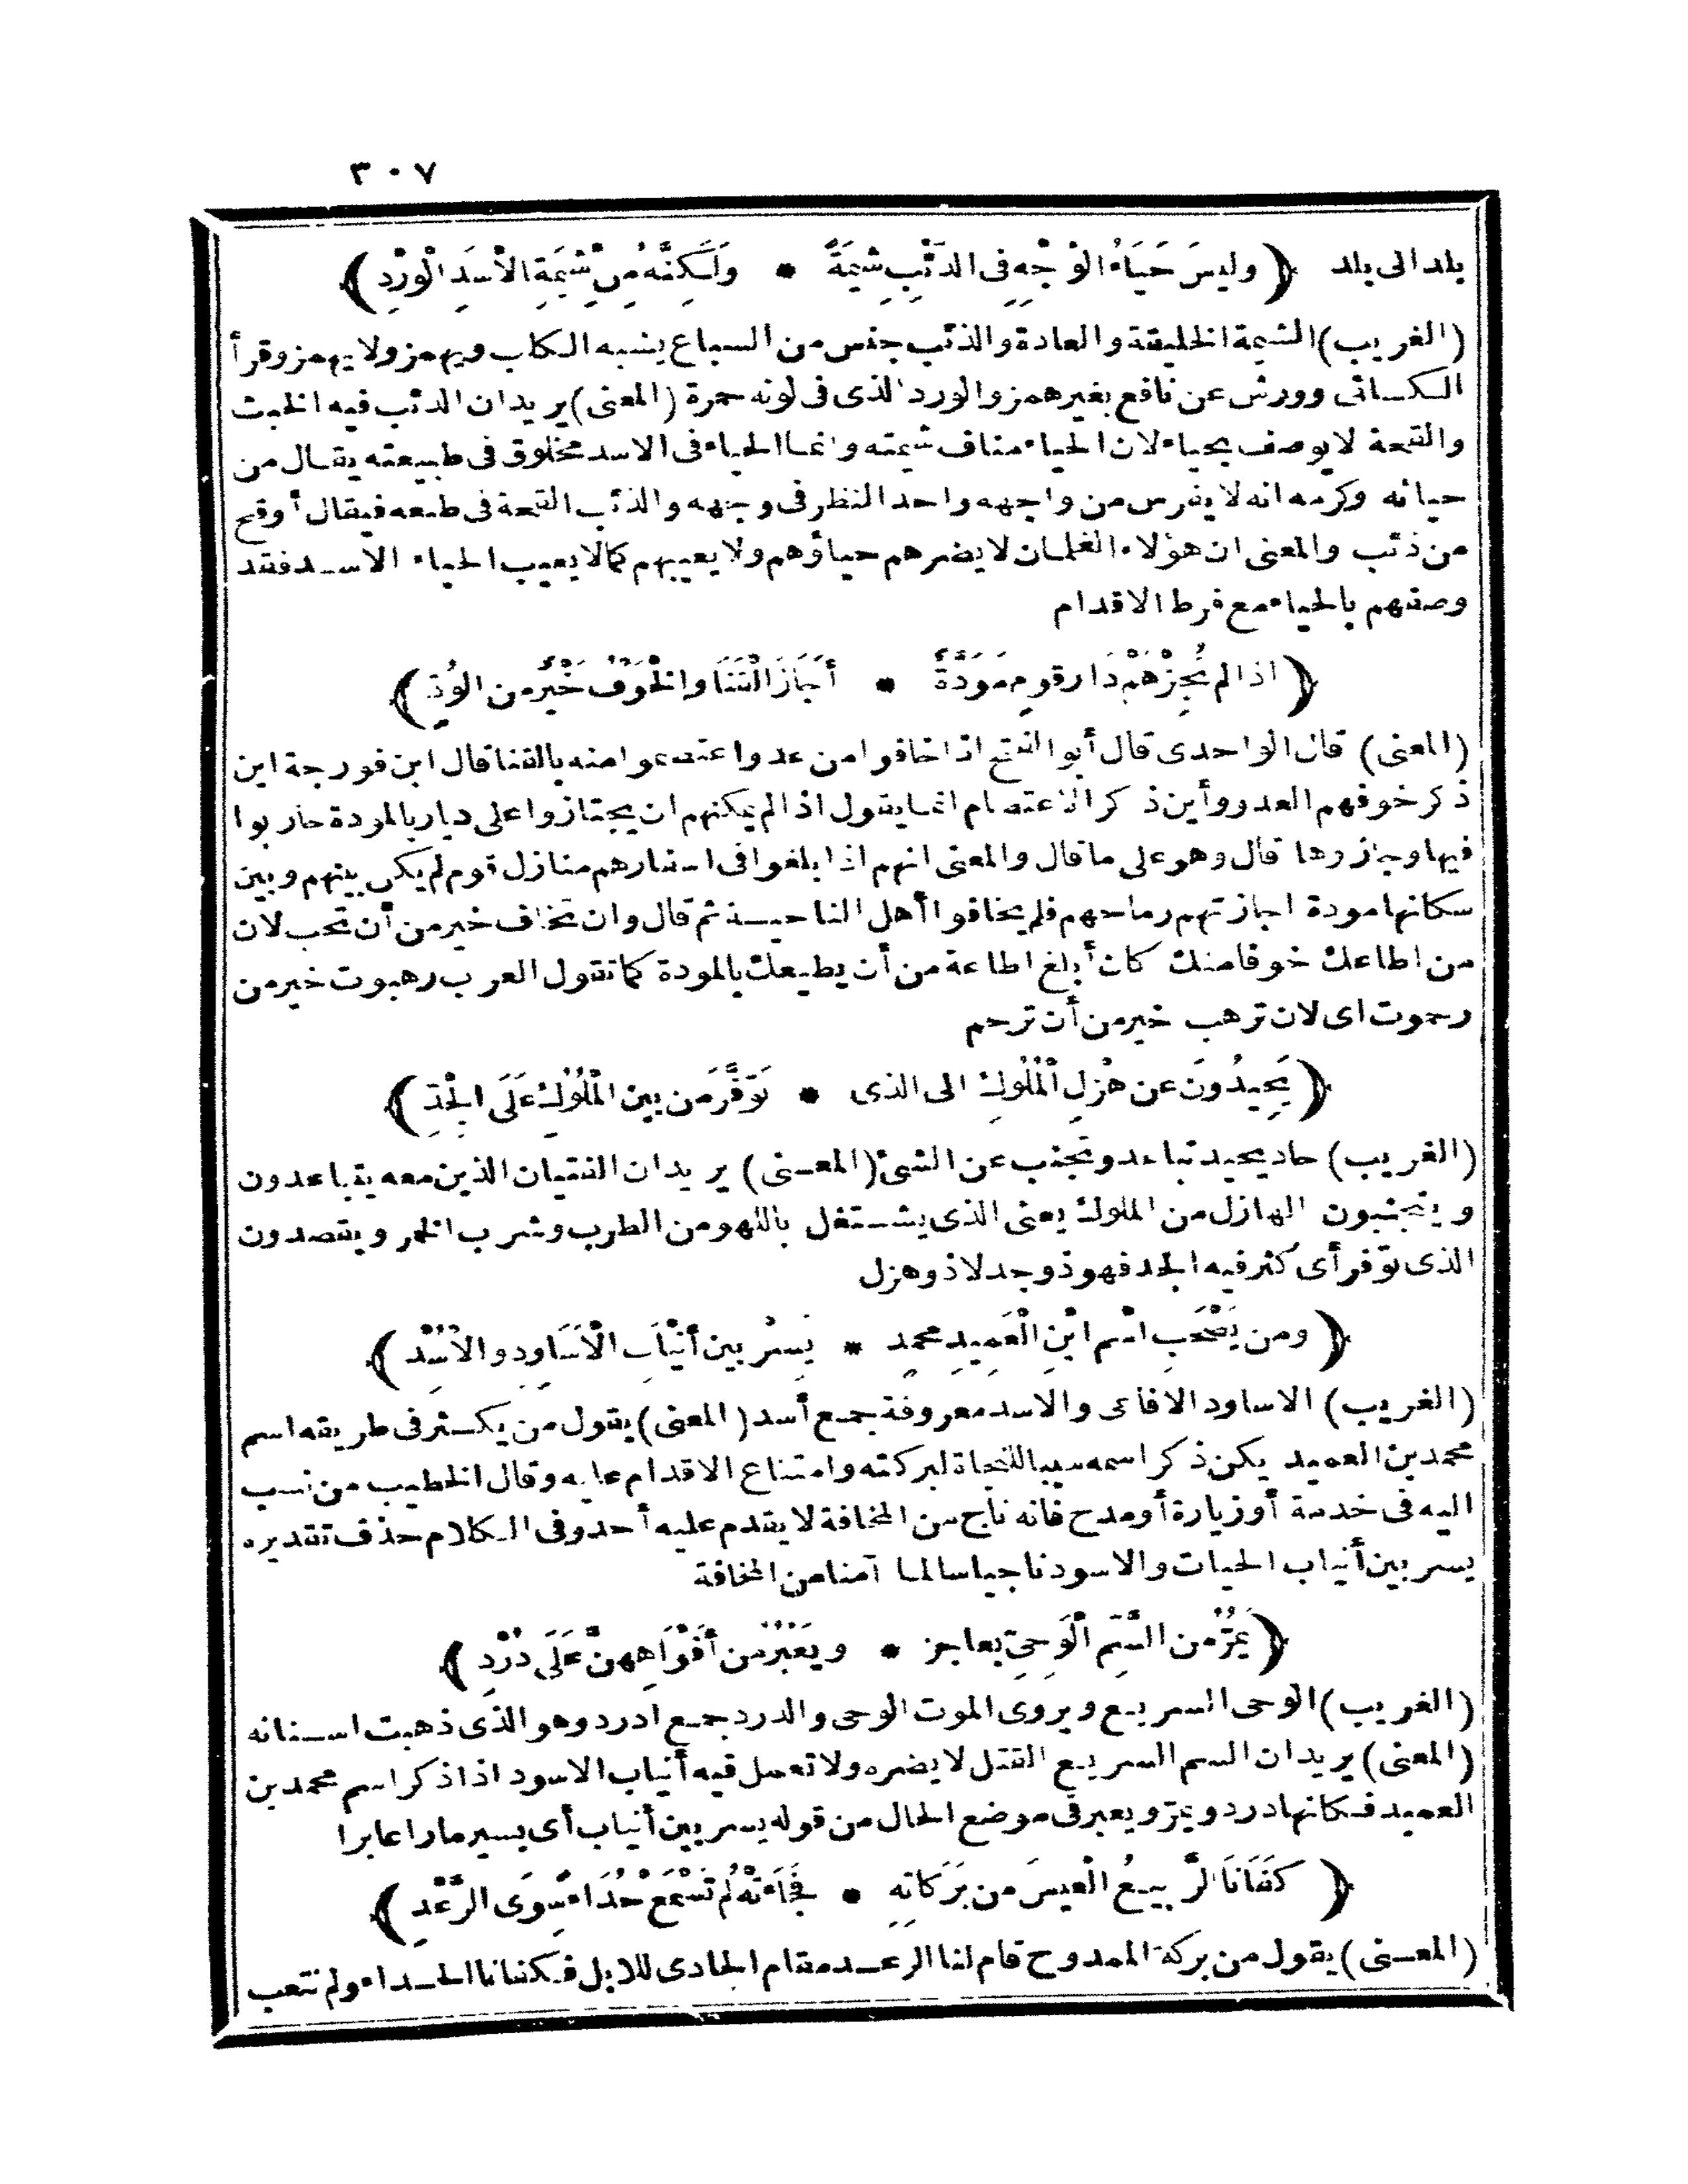 ٣٠٧
بلد الى بلد ﴿ وليسَ حَيَاءُ الوَجْهِ فى الذّئْبِ شيمَةً * وَلَكِنَّهُ مِنْ شِيَمَةِ الأسَدِ الْوَرْدِ ﴾
(الغريب) الشيمة الخليقة والعادة والذئب جنس من السباع يشبه الكلب ويهمز ولا يهمز وقرأ
الكسائى وورش عن نافع بغير همز والورد الذى فى لونه حمرة (المعنى) يريد ان الذئب فيه الخبث
والقحة لا يوصف بحياء لان الحياء مناف شيمته وانما الحياء فى الاسد مخلوق فى طبيعته يقال من
حيائه وكرمه انه لا يفرس من واجهه واحد النظر فى وجهه والذئب القحة فى طبعه فيقال أوقح
من ذئب والمعنى ان هؤلاء الغلمان لا يضرهم حياؤهم ولا يعيبهم كما لا يعيب الحياء الاسد فقد
وصفهم بالحياء مع فرط الاقدام
﴿ اذا لم تُجِزْهُمْ دَار قومٍ مَوَدَّةٌ * أَجَازَ القَنَا والخَوْفُ خَيْرٌ من الوُدِّ ﴾
(المعنى) قال الواحدى قال أبو الفتح اذا خافوا من عدوا عتصموا منه بالقنا قال ابن فورجة اين
ذكر خوفهم العدو وأين ذكر الاعتصام انما يقول اذا لم يمكنهم ان يجتازوا على ديار بالمودة حاربوا
فيها وجازوها قال وهو على ما قال والمعنى انهم اذا بلغوا فى اسفارهم منازل قوم لم يكن بينهم وبين
سكانها مودة اجازتهم رماحهم فلم يخافوا أهل الناحية ثم قال وان تخاف خير من أن تحب لان
من اطاعك خوفا منك كان أبلغ اطاعة من أن يطيعك بالمودة كما تقول العرب رهبوت خير من
رحموت اى لان ترهب خير من أن ترحم
﴿ يَحِيدُونَ عن هَزْلِ الْمُلُوكِ الى الذى * تَوَفَّرَ من بين الْمُلُوكِ عَلَى الجِدِّ ﴾
(الغريب) حاد يحيد تباعد وتجنب عن الشئ (المعنى) يريد ان الفتيان الذين معه يتباعدون
ويتجنبون الهازل من الملوك يعنى الذى يشتغل باللهو من الطرب وشرب الخمر ويقصدون
الذى توفر أى كثر فيه الجد فهو ذو جد لا ذو هزل
﴿ ومن يَصْحَبِ اسْم ابْنِ الْعَمِيدِ محمدٍ * يَسِرْ بين أَنْيَابِ الأَسَاوِدِ والأُسْدِ ﴾
(الغريب) الاساود الافاعى والاسد معروفة جمع أسد (المعنى) يقول من يكثر فى طريقه اسم
محمد بن العميد يكن ذكر اسمه سببا للنجاة لبركته وامتناع الاقدام عليه وقال الخطيب من نسب
اليه فى خدمة أو زيارة أو مدح فانه ناج من المخافة لا يقدم عليه أحد وفى الكلام حذف تقديره
يسر بين أنياب الحيات والاسود ناجيا سالما آمنا من المخافة
﴿ يَمُرُّ من السُّمِّ الْوَحِىِّ بعاجز * ويَعْبُرُ من أَفْوَاهِهِنَّ عَلَى دُرْدِ ﴾
(الغريب) الوحى السريع ويروى الموت الوحى والدرد جمع ادرد وهو الذى ذهبت اسنانه
(المعنى) يريد ان السم السريع القتل لا يضره ولا تعمل فيه أنياب الاسود اذا ذكر اسم محمد بن
العميد فكانها درد ويمرّ ويعبر فى موضع الحال من قوله يسر بين أنياب أى يسير مارا عابرا
﴿ كَفَانَا الرَّبيعُ الْعِيسَ من بَرَكاتِهِ * فَجَاءَتْهُ لم تَسْمَعْ حُدَاءً سِوَى الرَّعْدِ ﴾
(المعنى) يقول من بركة الممدوح قام لنا الرعد مقام الحادى للابل فكفانا الحداء ولم نتعب